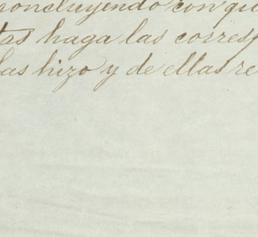 concluyendo con qu
tas haga las corres
las hizo y de ellas re